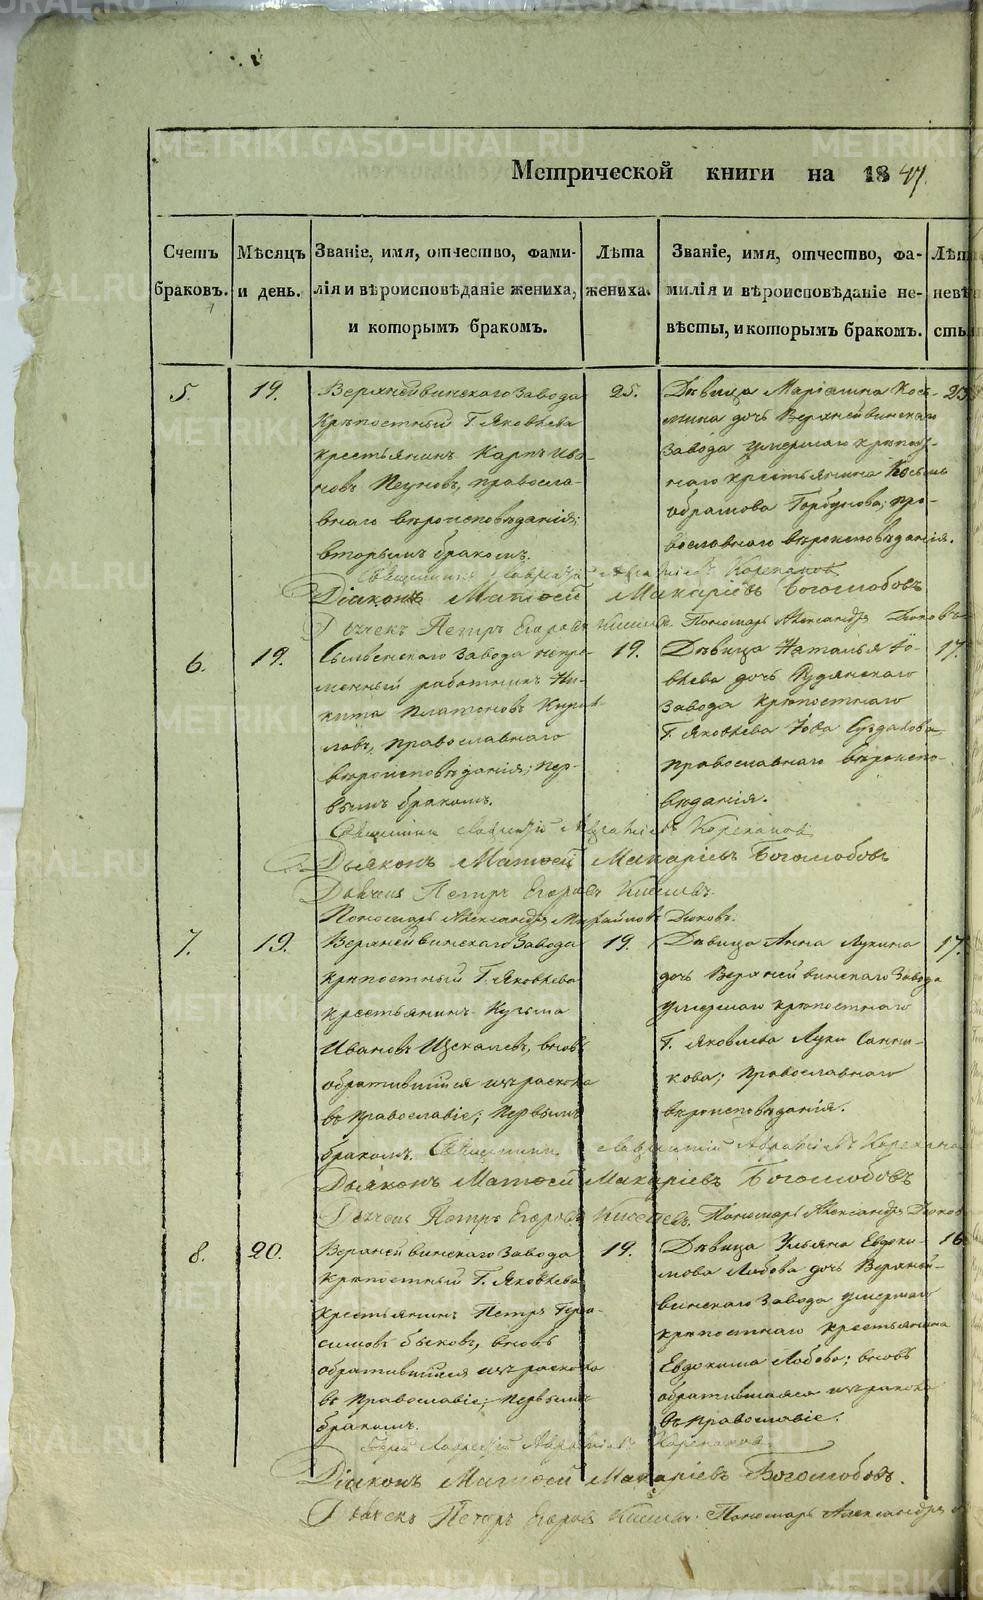 Метрической книги на 1847.
Счетъ браковъ.
Мѣсяцъ и день.
Званіе, имя, отчество, фами-
лія и вѣроисповѣданіе жениха,
и которымъ бракомъ.
Лѣта
жениха.
Званіе, имя, отчество, фа-
милія и вѣроисповѣданіе не-
вѣсты, и которымъ бракомъ.
Лѣта
невѣ
сты
5.
19.
Верхнейвинскаго Завода
крѣпостный Г. Яковлева
крестьянинъ Карпъ Ива-
новъ Пеуновъ, правосла-
внаго вѣроисповѣданія;
вторымъ бракомъ.
25.
Дѣвица Маріамна Кось-
мина дочь Верхнейвинскаго
Завода умершаго крѣпост-
наго крестьянина Косьмы
Абрамова Горбунова; пра-
вославнаго вѣроисповѣданія.
25
Священникъ Лаврентій Авраміевъ Корепановъ
Діаконъ Матѳей Макаріевъ Богомобовъ
Дьячекъ Петръ Егоровъ Киселевъ. Пономарь Александръ
6.
19.
Сылвенскаго Завода непре-
менный работникъ Ни-
кита Платоновъ Кирил-
ловъ, православнаго
вѣроисповѣданія; пер-
вымъ бракомъ.
19.
Дѣвица Наталья Іо-
влева дочь Рудянскаго
Завода крѣпостнаго
Г. Яковлева Іова Суздалова,
православнаго вѣроиспо-
вѣданія.
17.
Священникъ Лаврентій Авраміевъ Корепановъ
Дьяконъ Матѳей Макаріевъ Богомобовъ
Дьячекъ Петръ Егоровъ Киселевъ.
Пономарь Александръ
7.
19.
Верхнейвинскаго Завода
крѣпостный Г. Яковлева
крестьянинъ Кузьма
Ивановъ Щекалевъ, вновь
обратившійся изъ раскола
въ православіе; первымъ
бракомъ.
19.
Дѣвица Анна Лукина
дочь Верхнейвинскаго Завода
умершаго крѣпостнаго
Г. Яковлева Луки Санни-
кова; православнаго
вѣроисповѣданія.
17.
Священникъ Лаврентій Авраміевъ Корепановъ
Дьяконъ Матѳей Макаріевъ Богомобовъ
Дьячекъ Петръ Егоровъ Киселевъ. Пономарь Александръ
8.
20.
Верхнейвинскаго Завода
крѣпостный Г. Яковлева
крестьянинъ Петръ Гера-
симовъ Быковъ, вновь
обратившійся изъ раскола
въ православіе; первымъ
бракомъ.
19.
Дѣвица Ульяна Евдоки-
мова Лобова дочь Верхней-
винскаго Завода умершаго
крѣпостнаго крестьянина
Евдокима Лобова; вновь
обратившаяся изъ раскола
въ православіе.
16
Іерей Лаврентій Авраміевъ Корепановъ.
Діаконъ Матѳей Макаріевъ Богомобовъ.
Дьячекъ Петръ Егоровъ Киселевъ. Пономарь Александръ
METRIKI.GASO-URAL.RU